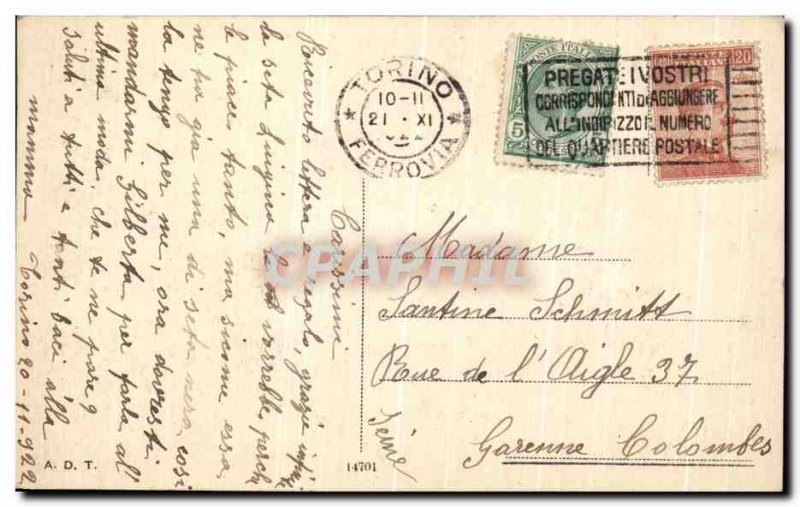 Carissima
Ricevuto lettera e regalo, grazie
la seta Luigina la vorrebbe perchè
le piace tanto, ma siccome essa
ne ha già una di seta nera, così
la tengo per me, ora dovresti
mandarmi Gilberta per farla all'
ultima moda, che te ne pare?
Saluti a tutti e tanti baci dalla
mamma
Torino 20-11-922
A. D. T.
14701
TORINO
10-11
21 · XI
FERROVIA
POSTE ITALIANE
5
20
PREGATE I VOSTRI
CORRISPONDENTI DI AGGIUNGERE
ALL'INDIRIZZO IL NUMERO
DEL QUARTIERE POSTALE
CPARAMA
Madame
Santine Schmitt
Rue de l'Aigle 37
Garenne Colombes
Seine